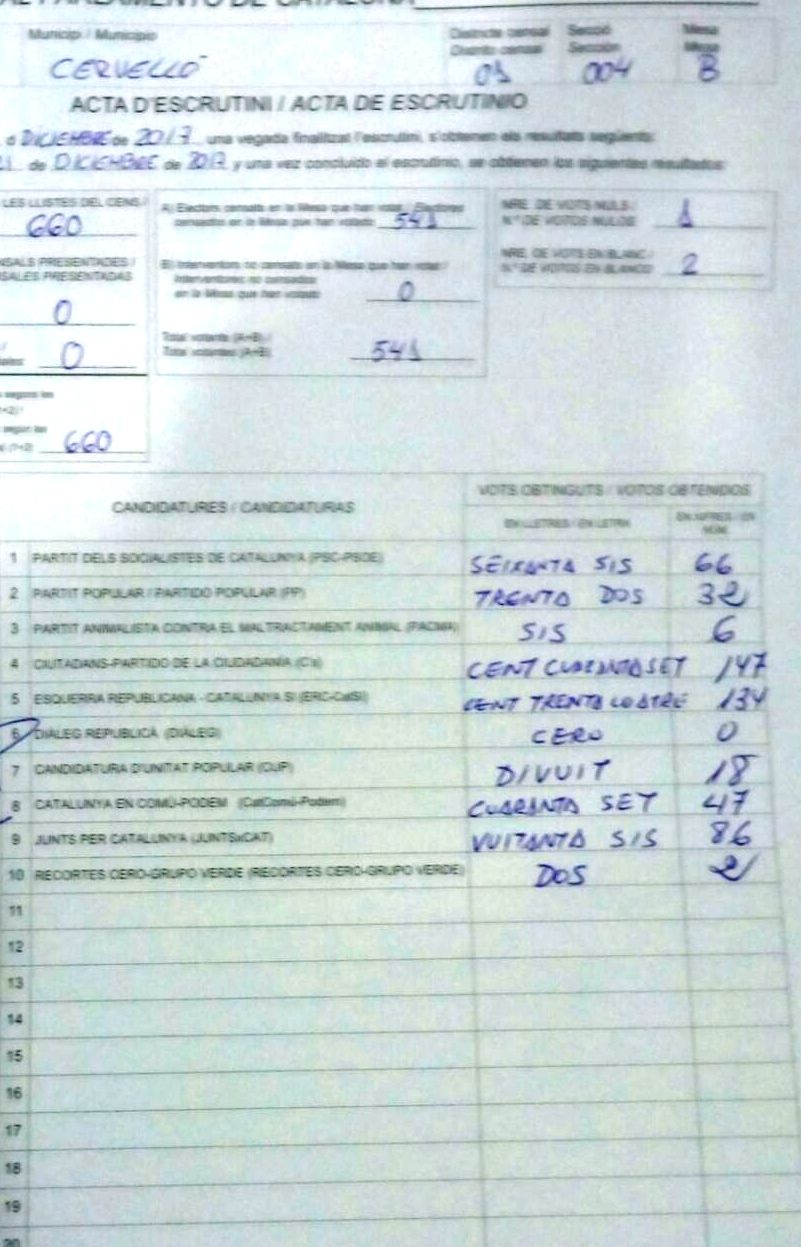 AL PARLAMENTO DE CATALUÑA
Municipi / Municipio
Districte censal
Distrito censal
Secció
Sección
Mesa
Mesa
CERVELLÓ
01
004
B
ACTA D'ESCRUTINI / ACTA DE ESCRUTINIO
d DICIEMBRE de 2017 una vegada finalitzat l'escrutini, s'obtenen els resultats següents:
de DICIEMBRE de 2017 y una vez concluido el escrutinio, se obtienen los siguientes resultados:
LES LLISTES DEL CENS /
660
A) Electors censats en la Mesa que han votat / Electores
censados en la Mesa que han votado 541
NRE. DE VOTS NULS /
N.º DE VOTOS NULOS 1
NSALS PRESENTADES /
SALES PRESENTADAS
0
B) Interventors no censats en la Mesa que han votat /
Interventores no censados
en la Mesa que han votado 0
NRE. DE VOTS EN BLANC /
N.º DE VOTOS EN BLANCO 2
0
Total votants (A+B) /
Total votantes (A+B) 541
segons les
según las
(1+2) 660
CANDIDATURES / CANDIDATURAS
VOTS OBTINGUTS / VOTOS OBTENIDOS
EN LLETRES / EN LETRA
EN XIFRES / EN NÚM.
1 PARTIT DELS SOCIALISTES DE CATALUNYA (PSC-PSOE) SEIXANTA SIS 66
2 PARTIT POPULAR / PARTIDO POPULAR (PP) TRENTA DOS 32
3 PARTIT ANIMALISTA CONTRA EL MALTRACTAMENT ANIMAL (PACMA) SIS 6
4 CIUTADANS-PARTIDO DE LA CIUDADANÍA (C's) CENT CUARANTA SET 147
5 ESQUERRA REPUBLICANA - CATALUNYA SÍ (ERC-CatSí) CENT TRENTA CUATRE 134
6 DIÀLEG REPUBLICÀ (DIÀLEG) CERO 0
7 CANDIDATURA D'UNITAT POPULAR (CUP) DIVUIT 18
8 CATALUNYA EN COMÚ-PODEM (CatComú-Podem) CUARANTA SET 47
9 JUNTS PER CATALUNYA (JUNTSxCAT) VUITANTA SIS 86
10 RECORTES CERO-GRUPO VERDE (RECORTES CERO-GRUPO VERDE) DOS 2
11
12
13
14
15
16
17
18
19
20